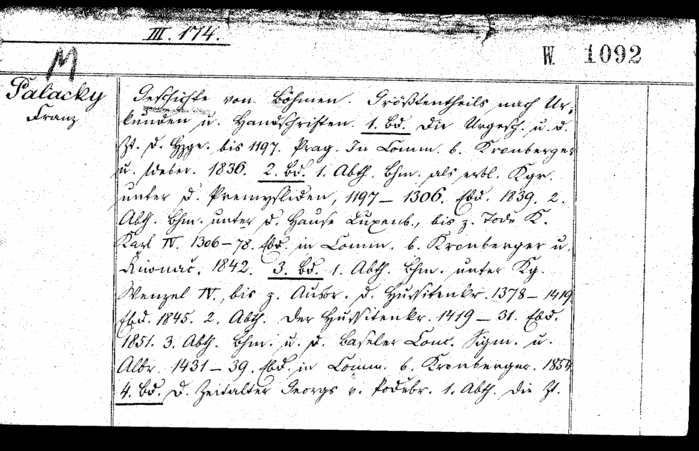 III. 174.
M
W. 1092
Palacky
Franz
Geschichte von Böhmen. Größtentheils nach Ur-
kunden u. Handschriften. 1. Bd. Die Urgesch. u. d.
Zt. d. Hzge. bis 1197. Prag. In Comm. b. Kronberger
u. Weber. 1836. 2. Bd. 1. Abth. Bhm. als erbl. Kgr.
unter d. Premysliden, 1197–1306. Ebd. 1839. 2.
Abth. Bhm. unter d. Hause Luxenb., bis z. Tode K.
Karl IV. 1306–78. Ebd. in Comm. b. Kronberger u.
Riwnač. 1842. 3. Bd. 1. Abth. Bhm. unter Kg.
Wenzel IV., bis z. Ausbr. d. Hussitenkr. 1378–1419
Ebd. 1845. 2. Abth. Der Hussitenkr. 1419–31. Ebd.
1851. 3. Abth. Bhm. u. d. Baseler Conc. Sigm. u.
Albr. 1431–39. Ebd. in Comm. b. Kronberger. 1854
4. Bd. D. Zeitalter Georgs v. Podebr. 1. Abth. Die Zt.